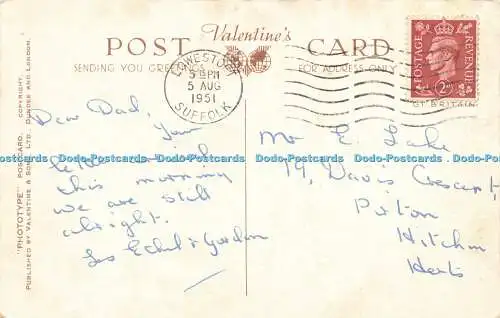 Valentine's
POST CARD
SENDING YOU GREETINGS
FOR ADDRESS ONLY
LOWESTOFT
5 PM
5 AUG
1951
SUFFOLK
POSTAGE REVENUE
GT BRITAIN
"PHOTOTYPE" POSTCARD. COPYRIGHT.
PUBLISHED BY VALENTINE & SONS, LTD. DUNDEE AND LONDON.
Dear Dad, Your
letter arrived
this morning
we are still
alright.
Les Ethel & Gordon
Mr E. Lake
79, Davis Crescent,
Pirton
Hitchin
Herts
Dodo-Postcards Dodo-Postcards Dodo-Postcards Dodo-Postcards Dodo-Postcards Dodo-Postcards